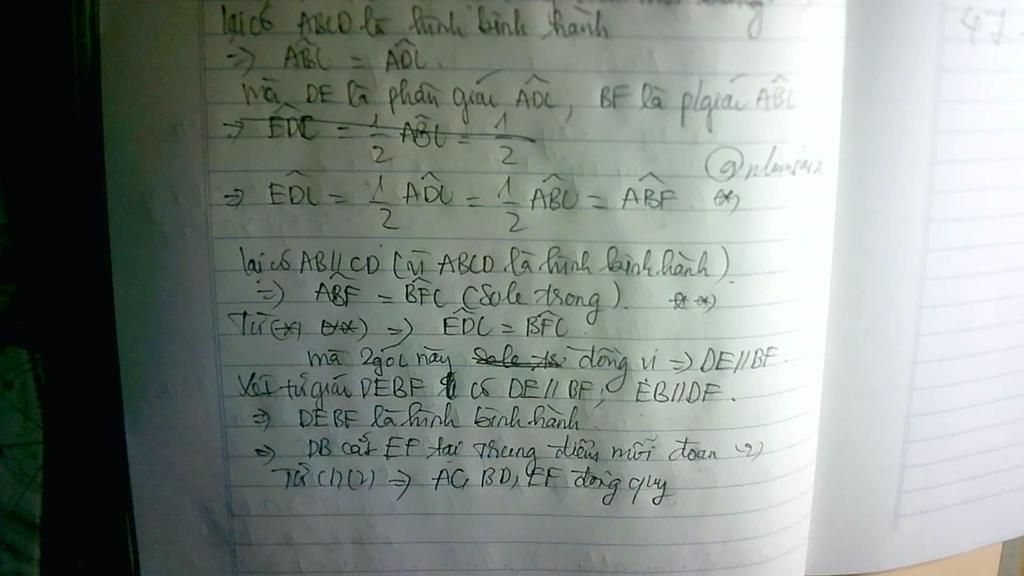 lại có ABCD là hình bình hành
47.
=> ABC^ = ADC^.
mà DE là phân giác ADC^, BF là p/giác ABC^
=> EDC^ = 1/2 ABC^ = 1/2
=> EDC^ = 1/2 ADC^ = 1/2 ABC^ = ABF^ (*)
lại có AB//CD (vì ABCD là hình bình hành)
=> ABF^ = BFC^ (so le trong). (**)
Từ (*) (**) => EDC^ = BFC^
mà 2 góc này đồng vị => DE//BF.
Xét tứ giác DEBF có DE//BF, EB//DF.
=> DEBF là hình bình hành
=> DB cắt EF tại trung điểm mỗi đoạn (2)
Từ (1)(2) => AC, BD, EF đồng quy